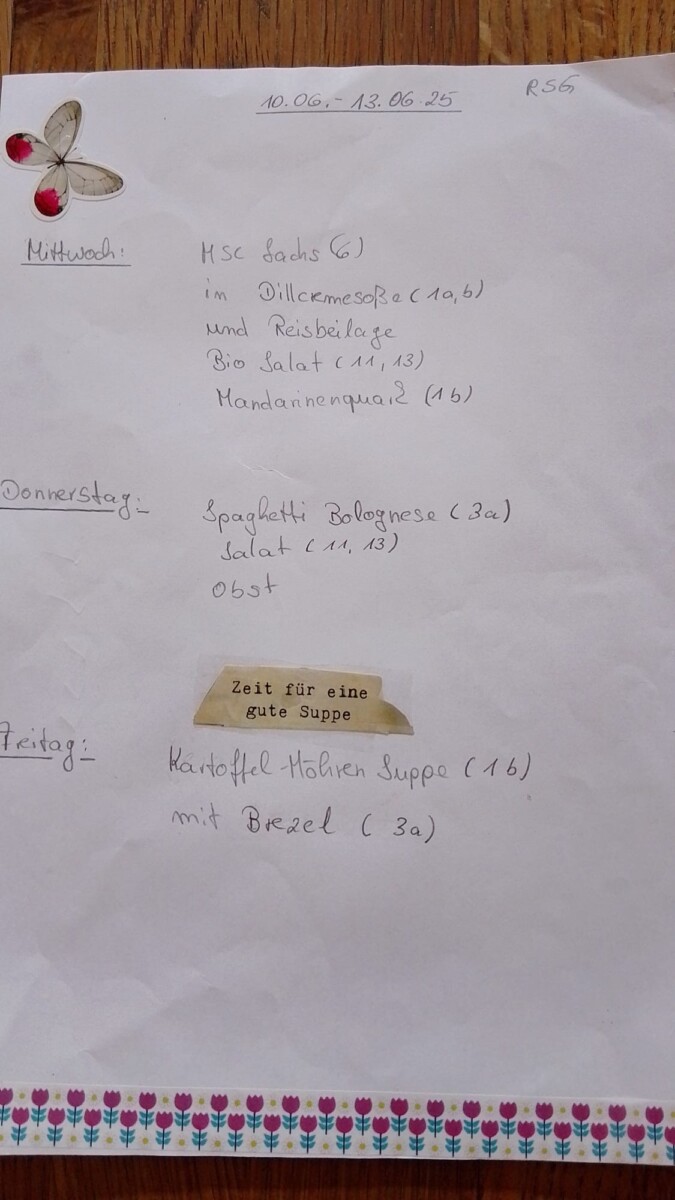 10.06.-13.06.25
RSG
Mittwoch:
MSC Lachs (6)
in Dillcremesoße (1a,b)
und Reisbeilage
Bio Salat (11, 13)
Mandarinenquark (1b)
Donnerstag:
Spaghetti Bolognese (3a)
Salat (11, 13)
Obst
Zeit für eine
gute Suppe
Freitag:
Kartoffel-Möhren Suppe (1b)
mit Brezel (3a)